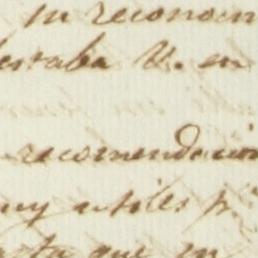 su reconocim
estaba V. en
recomendacion
muy utiles p.a
ta que en